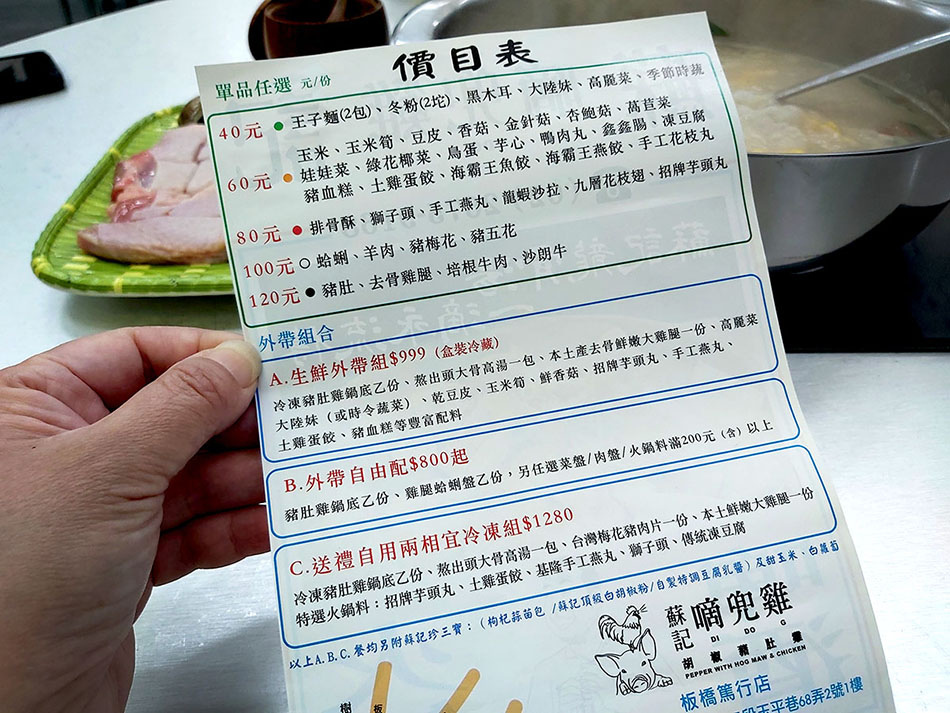 價目表
單品任選 元/份
40元 ● 王子麵(2包)、冬粉(2坨)、黑木耳、大陸妹、高麗菜、季節時蔬
玉米、玉米筍、豆皮、香菇、金針菇、杏鮑菇、萵苣菜
60元 ● 娃娃菜、綠花椰菜、鳥蛋、芋心、鴨肉丸、鑫鑫腸、凍豆腐
豬血糕、土雞蛋餃、海霸王魚餃、海霸王燕餃、手工花枝丸
80元 ● 排骨酥、獅子頭、手工燕丸、龍蝦沙拉、九層花枝翅、招牌芋頭丸
100元 ○ 蛤蜊、羊肉、豬梅花、豬五花
120元 ● 豬肚、去骨雞腿、培根牛肉、沙朗牛
外帶組合
A.生鮮外帶組$999（盒裝冷藏）
冷凍豬肚雞鍋底乙份、熬出頭大骨高湯一包、本土產去骨鮮嫩大雞腿一份、高麗菜
大陸妹（或時令蔬菜）、乾豆皮、玉米筍、鮮香菇、招牌芋頭丸、手工燕丸、
土雞蛋餃、豬血糕等豐富配料
B.外帶自由配$800起
豬肚雞鍋底乙份、雞腿蛤蜊盤乙份，另任選菜盤/肉盤/火鍋料滿200元（含）以上
C.送禮自用兩相宜冷凍組$1280
冷凍豬肚雞鍋底乙份、熬出頭大骨高湯一包、台灣梅花豬肉片一份、本土鮮嫩大雞腿一份
特選火鍋料：招牌芋頭丸、土雞蛋餃、基隆手工燕丸、獅子頭、傳統凍豆腐
以上A.B.C.餐均另附蘇記珍三寶：（枸杞蒜苗包 /蘇記頂級白胡椒粉/自製特調豆腐乳醬）及甜玉米、白蘿蔔
蘇記 嘀兜雞
DI DO G
胡椒豬肚雞
PEPPER WITH HOG MAW & CHICKEN
板橋篤行店
段壬平巷68弄2號1樓